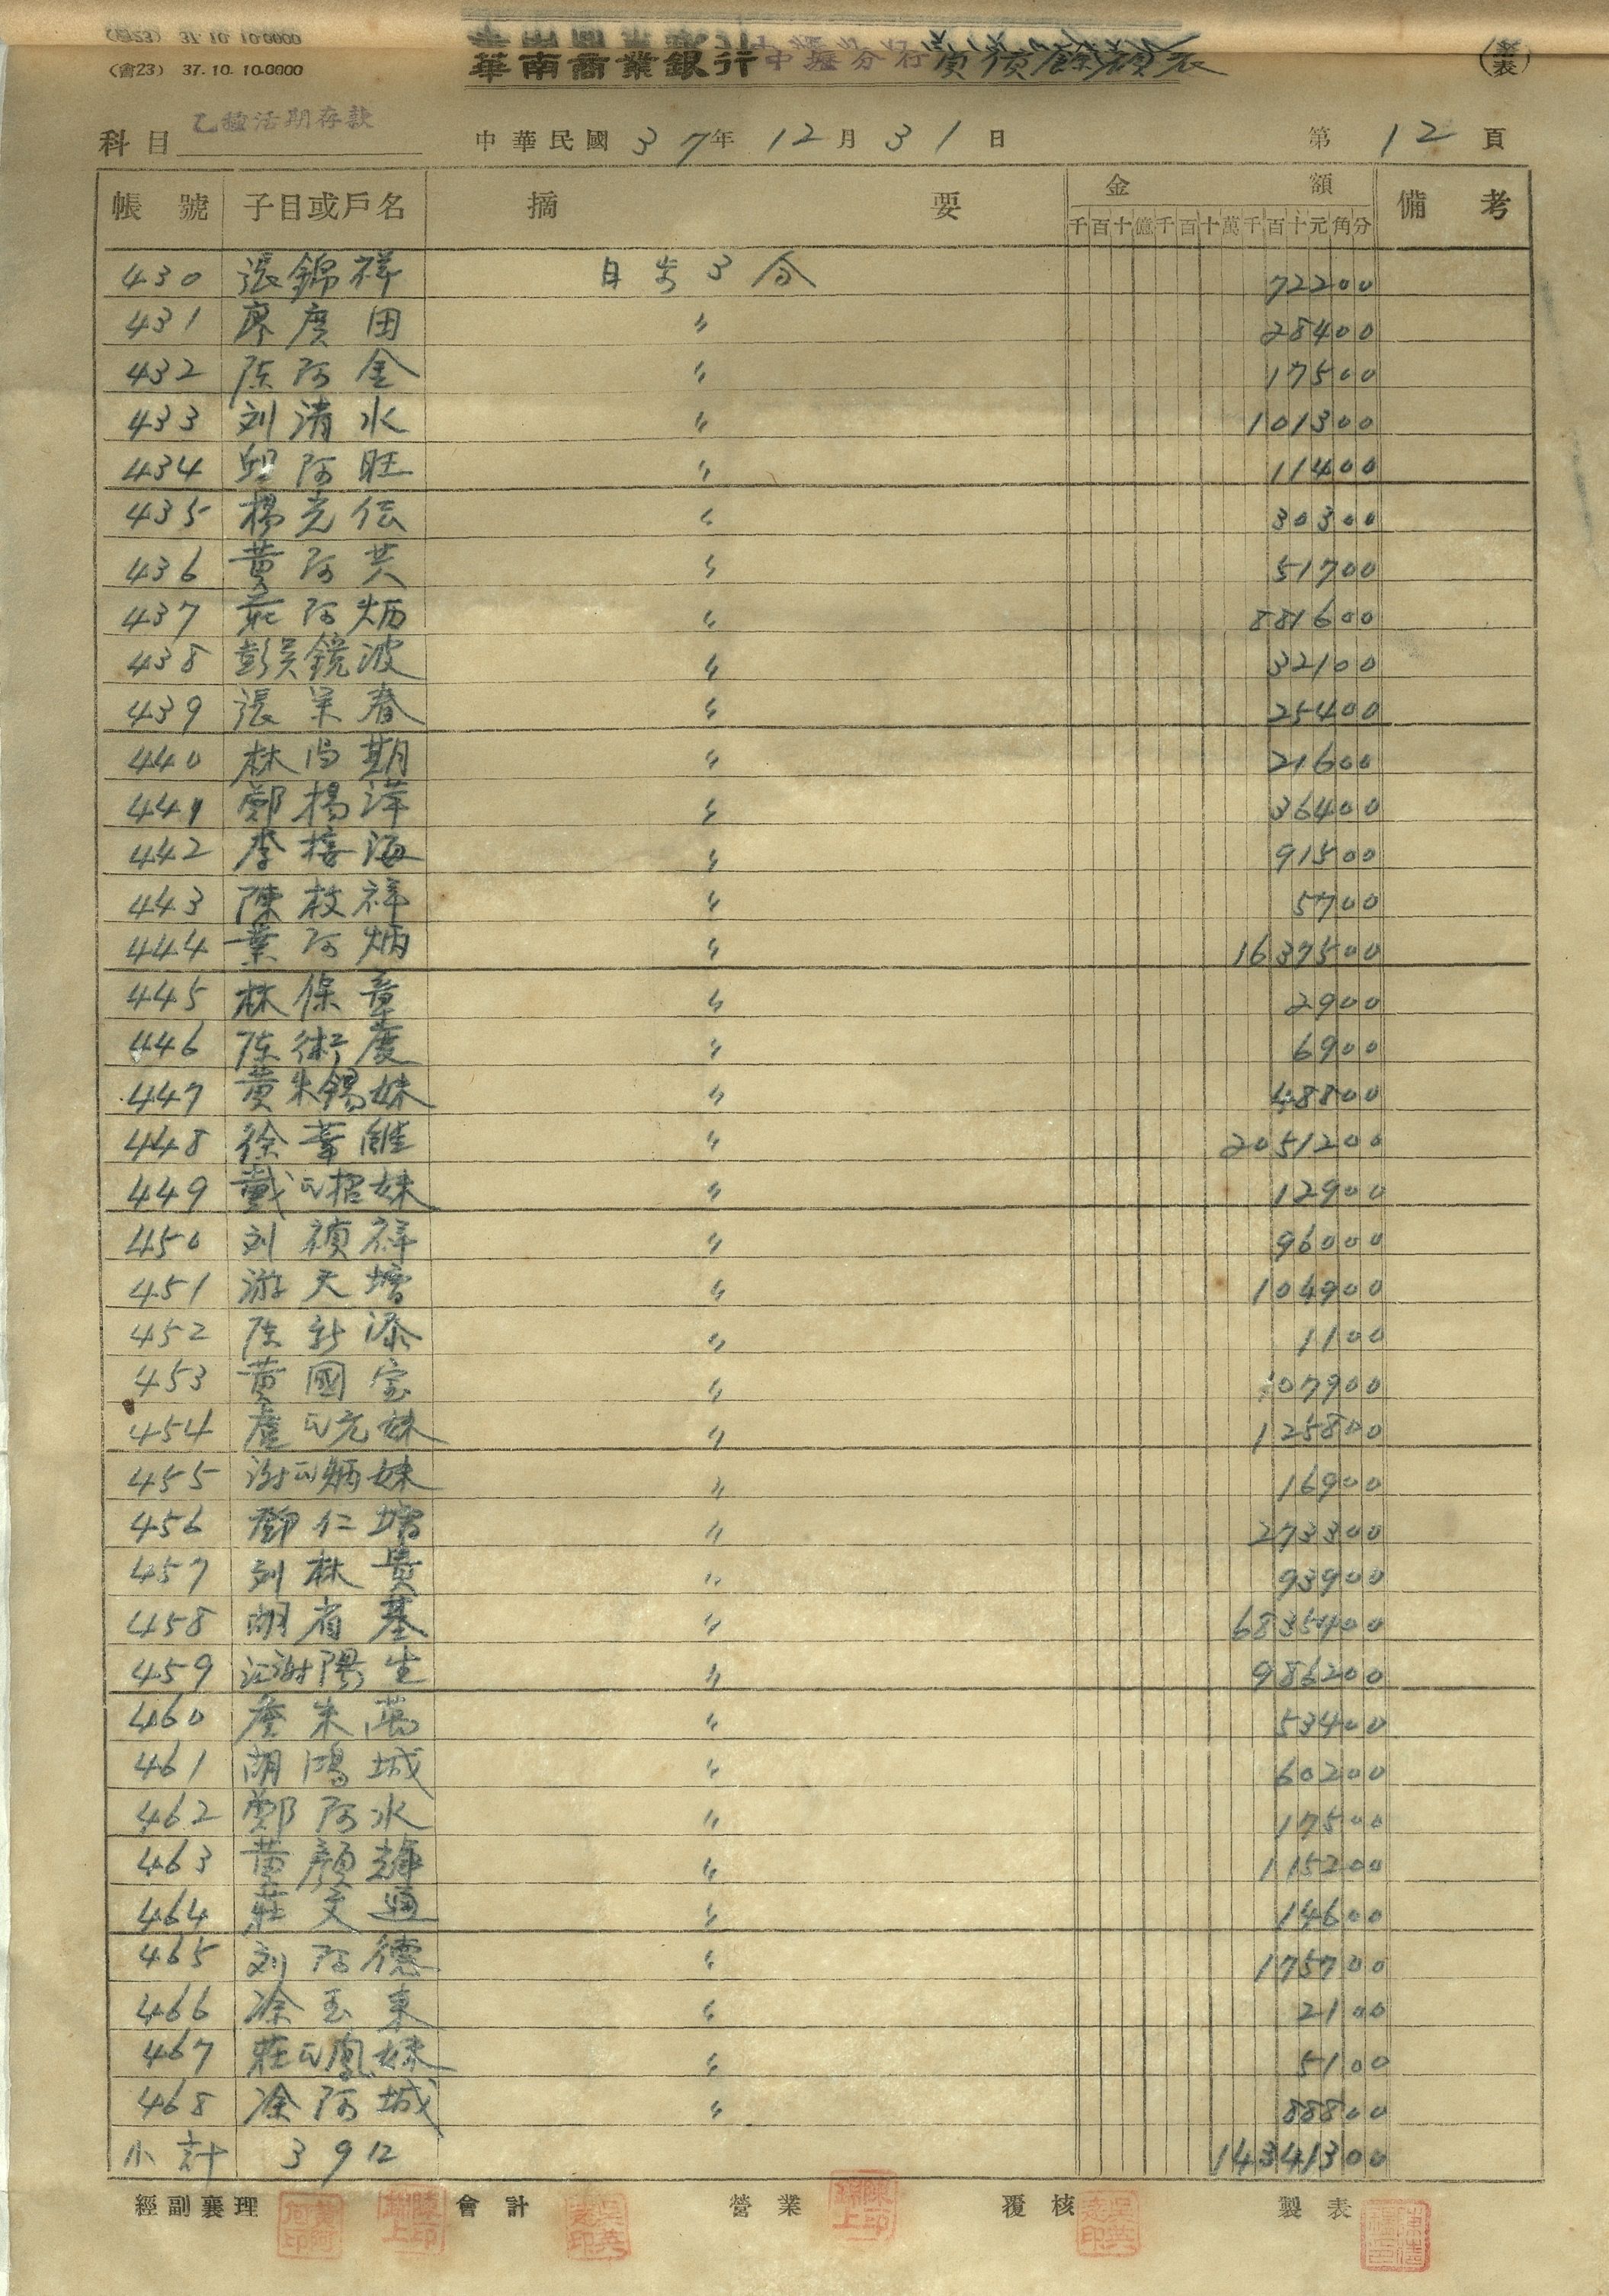 (會23) 37.10.10.0000
華南商業銀行 中壢分行 負債餘額表
科目 乙種活期存款 中華民國 37年 12月 31日 第 12 頁
帳號 子目或戶名 摘要 金額 備考
千百十億千百十萬千百十元角分
430 張錦祥 日步3分 72200
431 廖廣田 〃 28400
432 陈阿金 〃 17500
433 刘清水 〃 101300
434 邱阿旺 〃 11400
435 楊光伝 〃 30300
436 黄阿共 〃 51700
437 莊阿炳 〃 881600
438 彭吳鏡波 〃 32100
439 張栄春 〃 25400
440 林尚期 〃 21600
441 鄭楊萍 〃 36400
442 李接海 〃 91500
443 陳枝祥 〃 5700
444 葉阿炳 〃 1637500
445 林保章 〃 2900
446 陈術慶 〃 6900
447 黄朱錫妹 〃 48800
448 徐葦 〃 2051200
449 戴氏招妹 〃 12900
450 刘禎祥 〃 96000
451 游天增 〃 104900
452 陈新添 〃 1100
453 黄國宝 〃 107900
454 詹氏完妹 〃 125800
455 謝氏炳妹 〃 16900
456 鄧仁増 〃 273300
457 刘林貴 〃 93900
458 胡省基 〃 6835400
459 江謝陽生 〃 986200
460 詹朱萬 〃 53400
461 胡鴻城 〃 60200
462 鄭阿水 〃 17500
463 黄顏輝 〃 115200
464 莊文通 〃 14600
465 刘阿德 〃 175700
466 凃玉東 〃 2100
467 莊氏鳳妹 〃 5100
468 凃阿城 〃 88800
小計 39口 14341300
經副襄理 會計 營業 覆核 製表